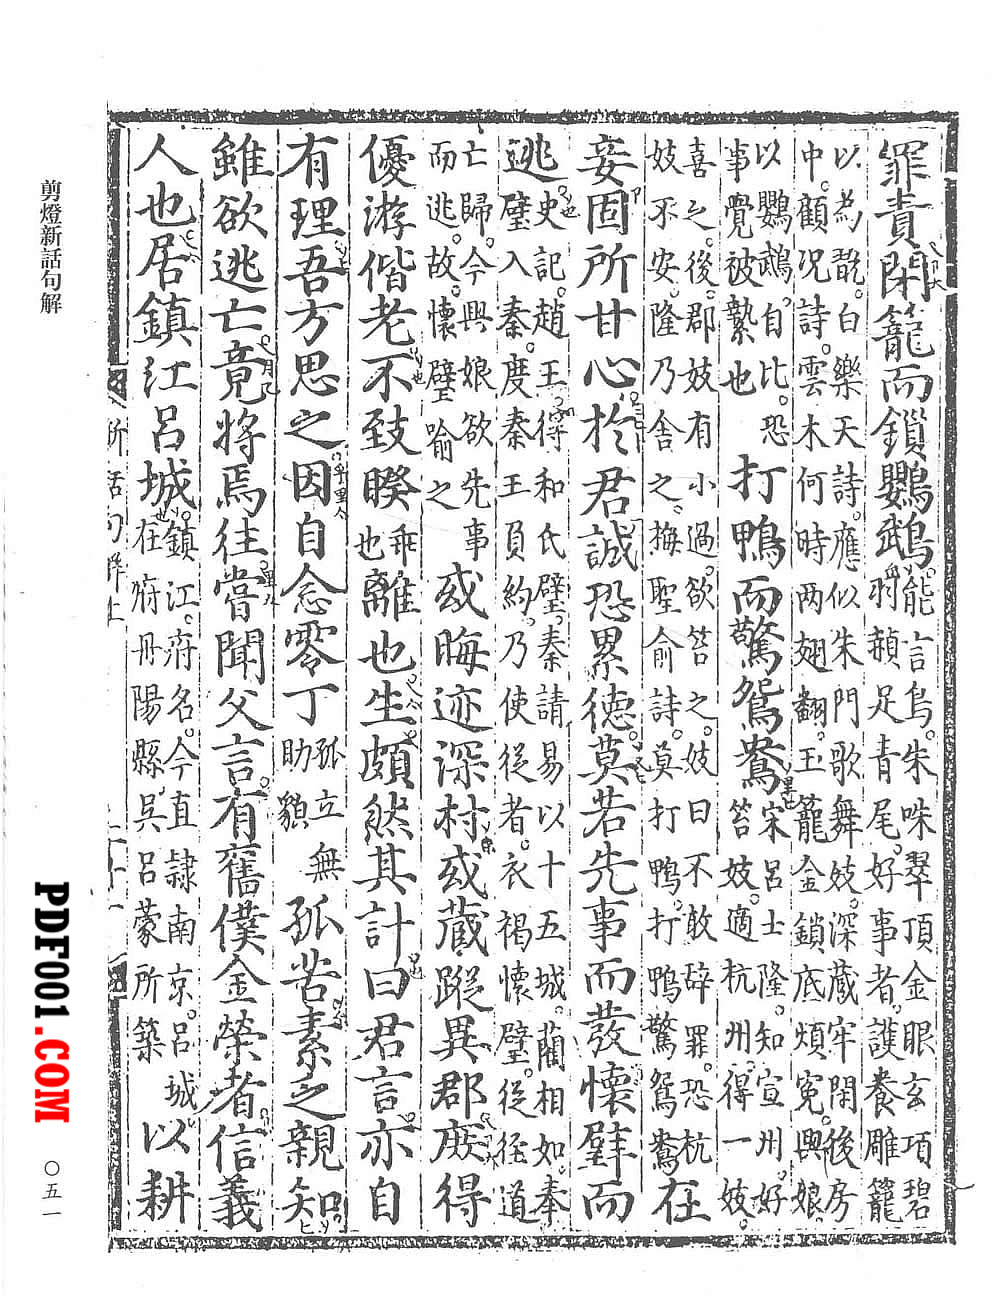 罪責閉籠而鎖鸚鵡能言鳥。朱咮翠頂金眼玄項碧羽赬足青尾。好事者。護養雕籠
以為翫。白樂天詩。應似朱門歌舞妓。深藏牢閉後房中。顧况詩。雲木何時兩翅翻。玉籠金鎖底煩冤。興娘。
以鸚鵡。自比。恐事覺被縶也打鴨而驚鴛鴦宋呂士隆。知宣州。好笞妓。適杭州。得一妓。
喜之。後。郡妓有小過。欲笞之。妓曰不敢辭罪。恐杭妓不安。隆乃舍之。梅聖俞詩。莫打鴨。打鴨驚鴛鴦在
妾固所甘心。於君誠恐累德。莫若先事而發懷璧而
逃。史記。趙王得和氏璧。秦請易以十五城。藺相如。奉璧入秦。度秦王負約。乃使從者。衣褐懷璧。從徑道
亡歸。今興娘欲先事而逃。故懷璧喻之或晦迹深村或藏蹤異郡庶得
優游偕老不致睽乖也離也生頗然其計曰君言。亦自
有理吾方思之因自念零丁孤立無助貌孤苦素乏親知
雖欲逃亡竟將焉往嘗聞父言。有舊僕金榮者。信義
人也居鎮江呂城鎮江。府名。今直隸南京。呂城在府丹陽縣。吳呂蒙所築以耕
剪燈新話句解
〇五一
PDF001.COM